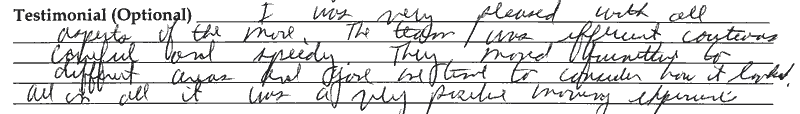 Testimonial (Optional) I was very pleased with all
aspects of the move. The team was efficient courteous
careful and speedy. They moved furniture to
different areas and gave me time to consider how it looked.
All in all it was a very positive moving experience